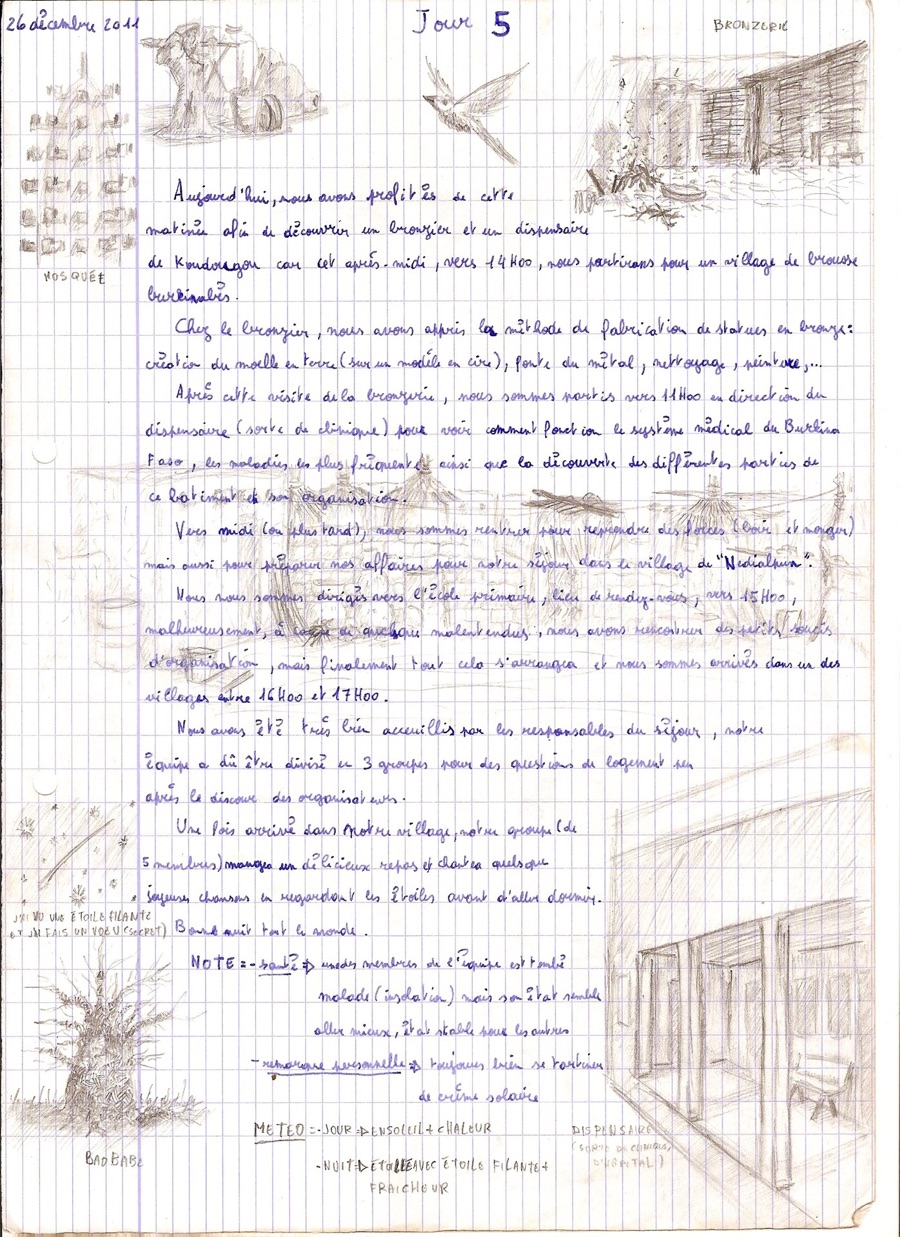 26 décembre 2011
Jour 5
BRONZERIE
MOSQUÉE
Aujourd'hui, nous avons profités de cette
matinée afin de découvrir un bronzier et un dispensaire
de Koudougou car cet après-midi, vers 14H00, nous partirons pour un village de brousse
burkinabés.
Chez le bronzier, nous avons appris la méthode de fabrication de statues en bronze:
création du moelle en terre (sur un modèle en cire), fonte du métal, nettoyage, peinture,...
Après cette visite de la bronzerie, nous sommes partis vers 11H00 en direction du
dispensaire (sorte de clinique) pour voir comment fonction le système médical du Burkina
Faso, les maladies les plus fréquente, ainsi que la découverte des différentes parties de
ce batiment et son organisation.
Vers midi (ou plus tard), nous sommes rentrer pour reprendre des forces (boir et manger)
mais aussi pour préparer nos affaires pour notre séjour dans le village de "Nedialpun".
Nous nous sommes dirigés vers l'école primaire, lieu de rendez-vous, vers 15H00,
malheureusement, à cause de quelque malentendus, nous avons rencontrer des petits soucis
d'organisation, mais finalement tout cela s'arrangea et nous sommes arrivés dans un des
villages entre 16H00 et 17H00.
Nous avons été très bien accueillis par les responsables du séjour, notre
équipe a dû être divisé en 3 groupes pour des questions de logement peu
après le discour des organisateurs.
Une fois arrivé dans notre village, notre groupe (de
5 membres) mangea un délicieux repas et chanta quelque
joyeuses chansons en regardant les étoiles avant d'aller dormir.
Bonne nuit tout le monde.
J'AI VU UNE ÉTOILE FILANTE
ET J'AI FAIS UN VOEU (SECRET)
NOTE = - santé => un des membres de l'équipe est tombé
malade (insolation) mais son état semble
aller mieux, état stable pour les autres
- remarque personnelle => toujours bien se tartiner
de crème solaire
METEO = - JOUR => ENSOLEIL + CHALEUR
- NUIT => ÉTOILE AVEC ÉTOILE FILANTE +
FRAICHEUR
BAOBABE
DISPENSAIRE
(SORTE DE CLINIQUE,
D'HOPITAL)